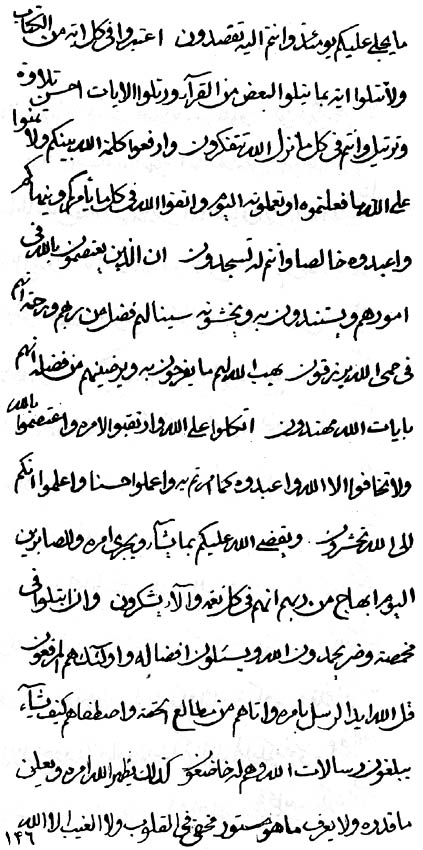 ما يجلي عليكم يومئذ وانتم اليه تقصدون اعتبروا في كل اية من الكتاب
ولا تتلوا اية بما يتلوا البعض من القرآن ورتلوا الايات احسن تلاوة
وترتيل وانتم في كل ما نزل الله تتفكرون وارفعوا كلمة الله بينكم ولا تمنوا
على الله بما فعلتموه او تعلونه اليوم واتقوا الله في كل ما يأمركم وينهاكم
واعبدوه خالصا وانتم له تسجدون ان الذين يعتصمون بالله في
امورهم ويستندون به ويخشونه سينالهم فضل من ربهم ورحمة انهم
في حمى الله يرزقون يهب الله لهم ما يفرحون به ويرضينهم من فضله انهم
بايات الله مهتدون اتكلوا على الله وارتقبوا لامره واعتصموا بالله
ولا تخافوا الا الله واعبدوه كما امرتم به واعملوا حسنا واعلموا انكم
الى الله تحشرون ويقضي الله عليكم بما يشآء ويجري امره وللصابرين
اليوم ابهاج من ربهم انهم في كل نعمه وآلآء يشكرون وان ابتلوا في
مخمصة وضر يحمدون الله ويسئلون افضاله واولئك هم المرفعون
قل الله ايد الرسل بامره واتاهم من مطالع الحكمة واصطفاهم كيف يشآء
يبلغون رسالات الله وهم له خاضعون كذلك يظهر الله امره ويعلي
ما قدره ولا يعرف ما هو مستور مخفي في القلوب ولا الغيب الا الله
١٤٦